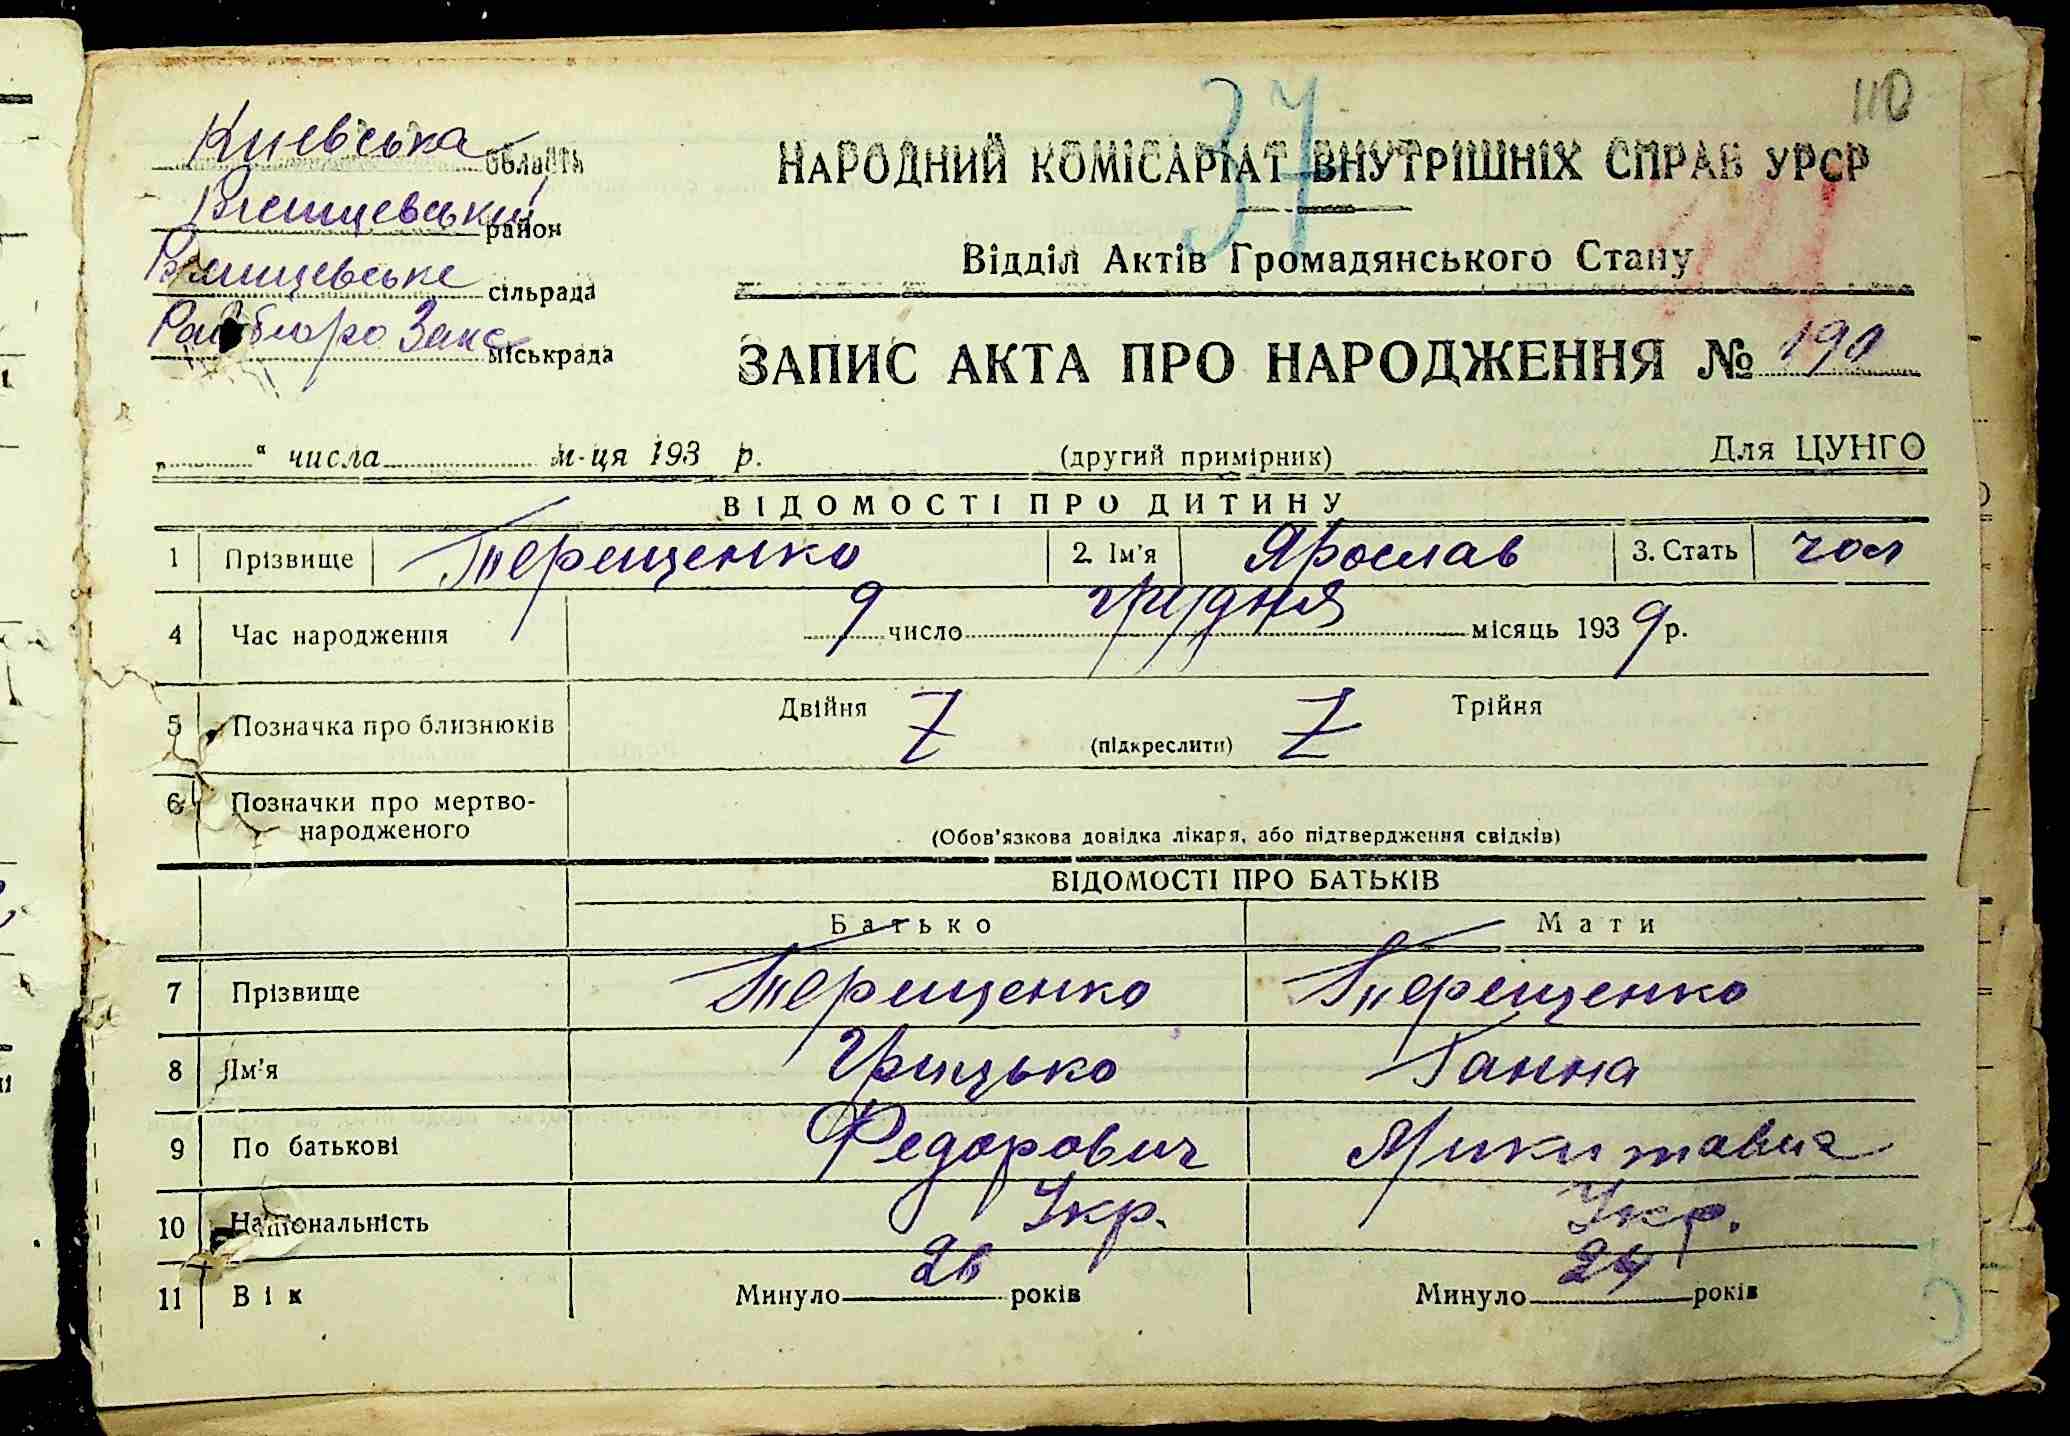 110
37
Киевська область
район
сільрада
Райбюро Загс міськрада
НАРОДНИЙ КОМІСАРІАТ ВНУТРІШНІХ СПРАВ УРСР
Відділ Актів Громадянського Стану
ЗАПИС АКТА ПРО НАРОДЖЕННЯ № 190
„ “ числа м-ця 193 р. (другий примірник) Для ЦУНГО
ВІДОМОСТІ ПРО ДИТИНУ
1 Прізвище Терещенко 2. Ім'я Ярослав 3. Стать чол
4 Час народження 9 число грудня місяць 1939 р.
5 Позначка про близнюків Двійня Z (підкреслити) Z Трійня
6 Позначки про мертво-
народженого (Обов'язкова довідка лікаря, або підтвердження свідків)
ВІДОМОСТІ ПРО БАТЬКІВ
Батько Мати
7 Прізвище Терещенко Терещенко
8 Ім'я Грицько Ганна
9 По батькові Федорович Микитовна
10 Національність Укр. Укр.
11 Вік Минуло 26 років Минуло 24 років